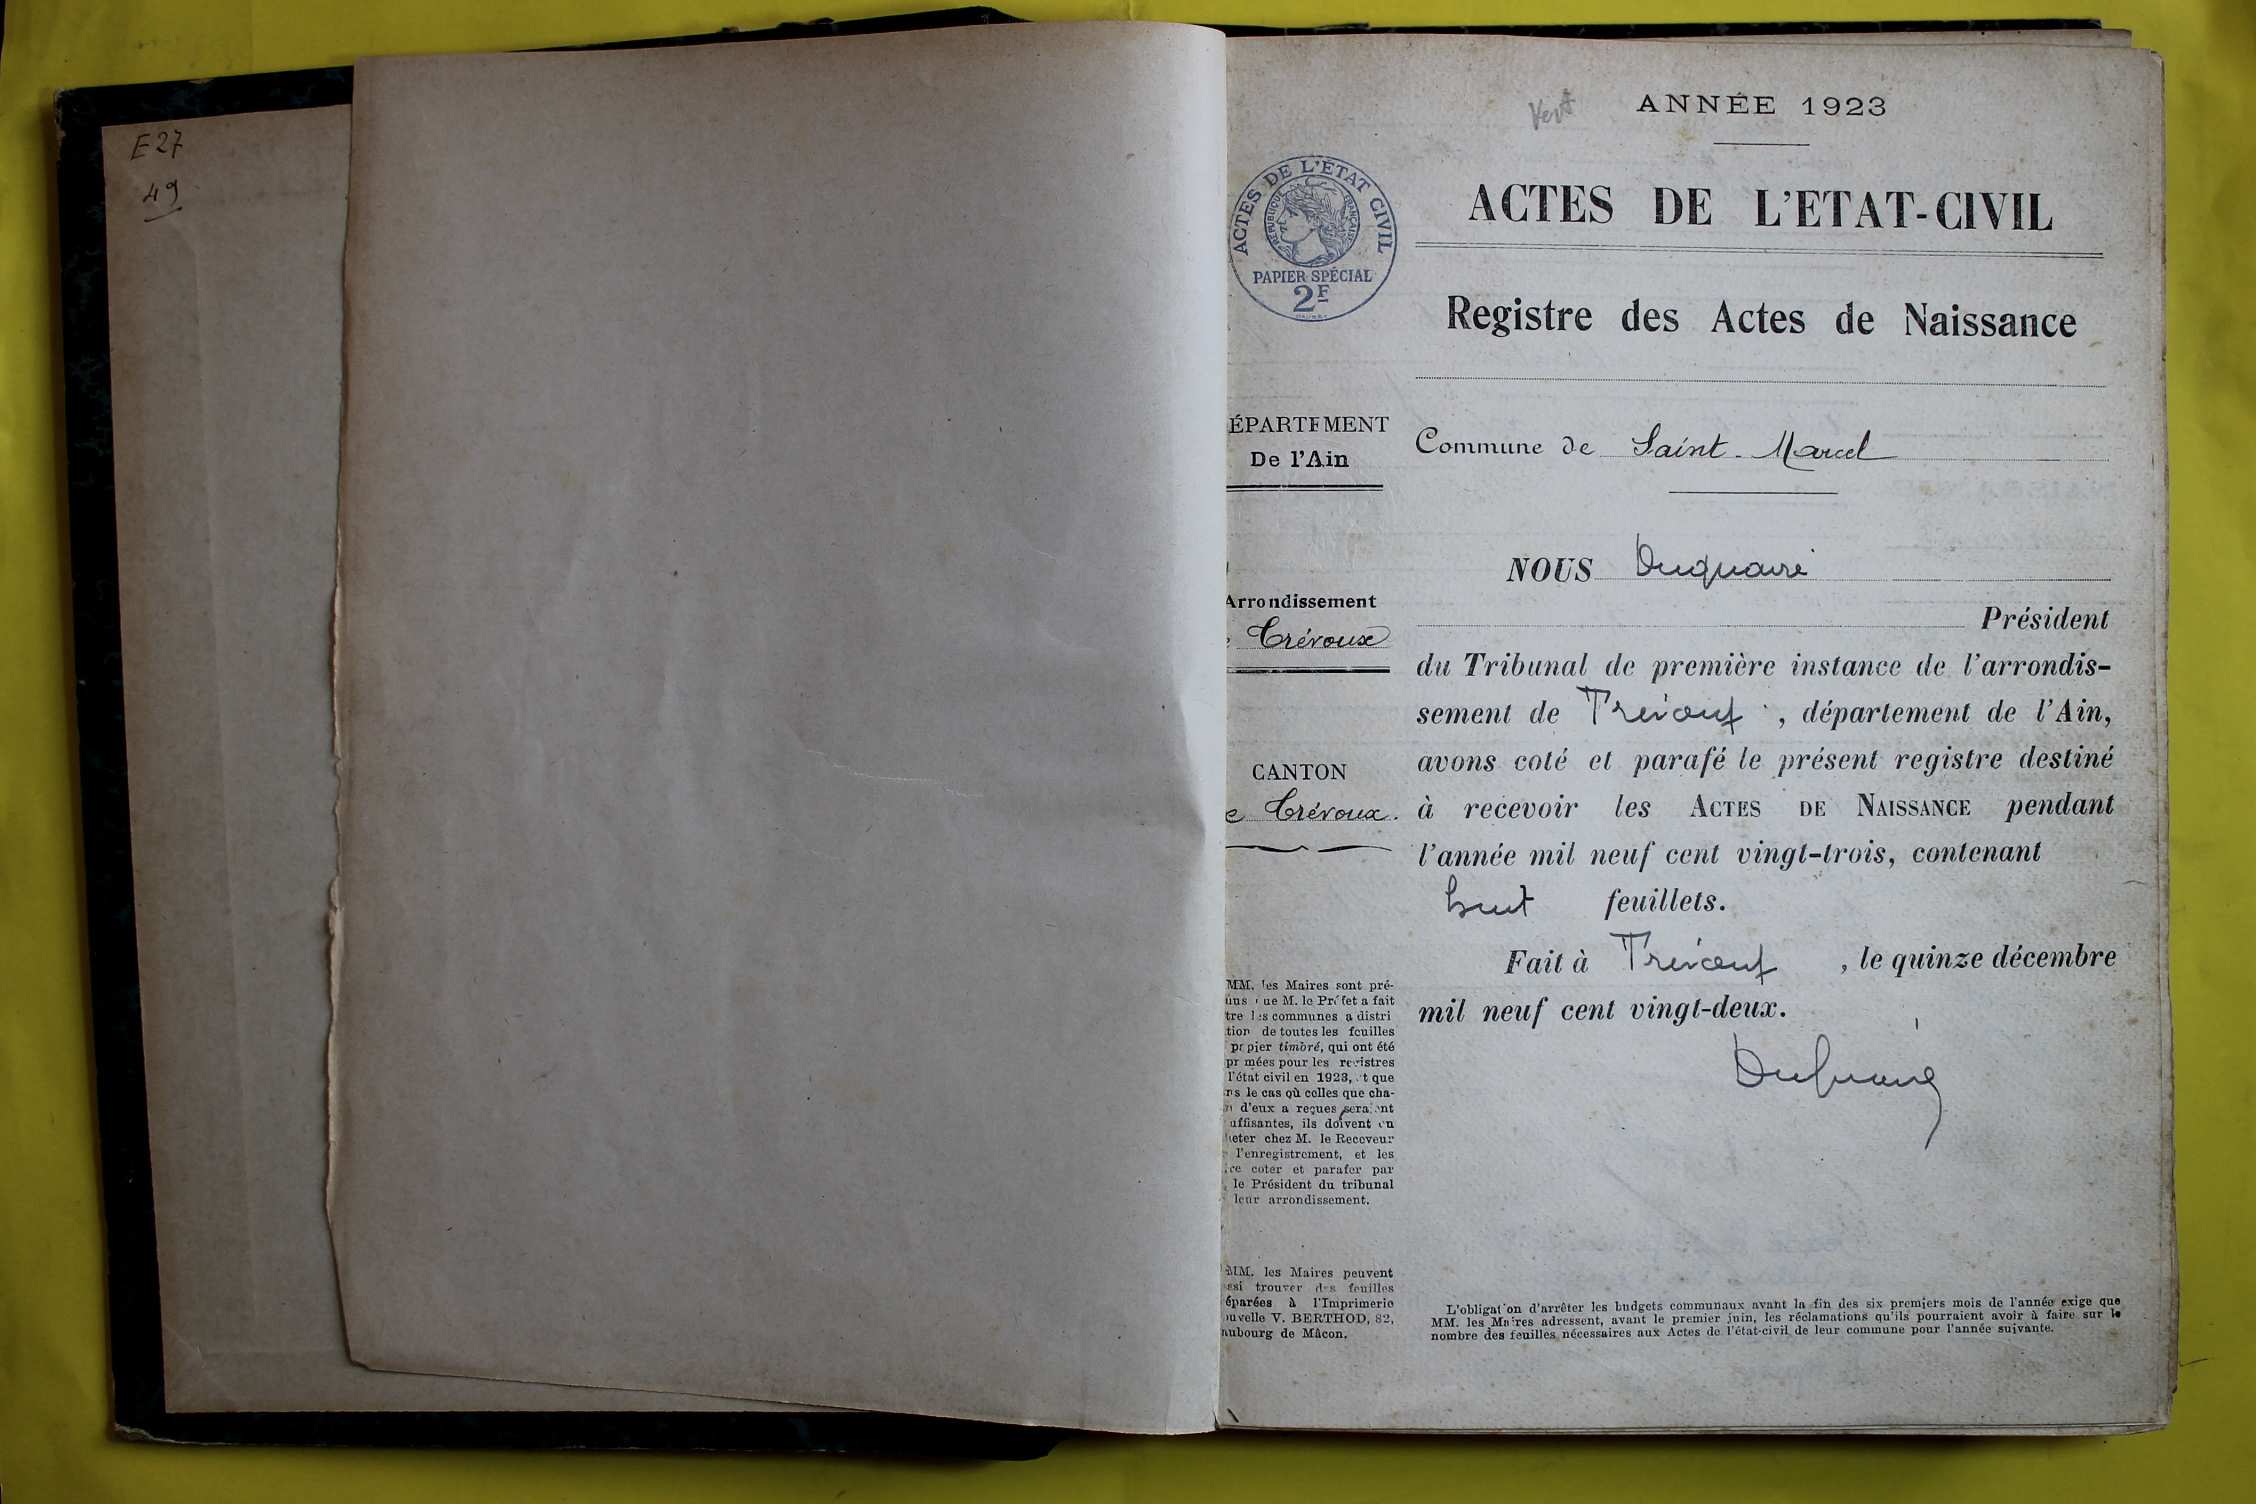 E 27
49
Vert
ANNÉE 1923
ACTES DE L'ÉTAT CIVIL
RÉPUBLIQUE FRANÇAISE
PAPIER SPÉCIAL
2F
ACTES DE L'ETAT-CIVIL
Registre des Actes de Naissance
ÉPARTEMENT
De l'Ain
Commune de Saint-Marcel
NOUS Duquaire
Président
Arrondissement
Trévoux
du Tribunal de première instance de l'arrondis-
sement de Trévoux, département de l'Ain,
avons coté et parafé le présent registre destiné
à recevoir les ACTES DE NAISSANCE pendant
l'année mil neuf cent vingt-trois, contenant
huit feuillets.
Fait à Trévoux, le quinze décembre
mil neuf cent vingt-deux.
Duquaire
CANTON
e Trévoux.
MM. les Maires sont pré-
ue M. le Préfet a fait
tre les communes a distri
tion de toutes les feuilles
papier timbré, qui ont été
pr mées pour les registres
l'état civil en 1923, t que
ns le cas où celles que cha-
d'eux a reçues seraient
uffisantes, ils doivent en
heter chez M. le Receveur
l'enregistrement, et les
re coter et parafer par
le Président du tribunal
leur arrondissement.
MM. les Maires peuvent
ssi trouver des feuilles
éparées à l'Imprimerie
ouvelle V. BERTHOD, 82,
aubourg de Mâcon.
L'obligation d'arrêter les budgets communaux avant la fin des six premiers mois de l'année exige que
MM. les Maires adressent, avant le premier juin, les réclamations qu'ils pourraient avoir à faire sur le
nombre des feuilles nécessaires aux Actes de l'état-civil de leur commune pour l'année suivante.